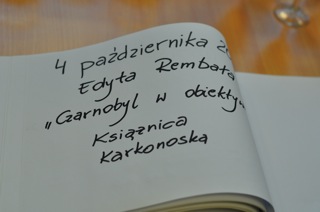 4 października
Edyta Rembała
„Czarnobyl w obiekty
Książnica
Karkonoska